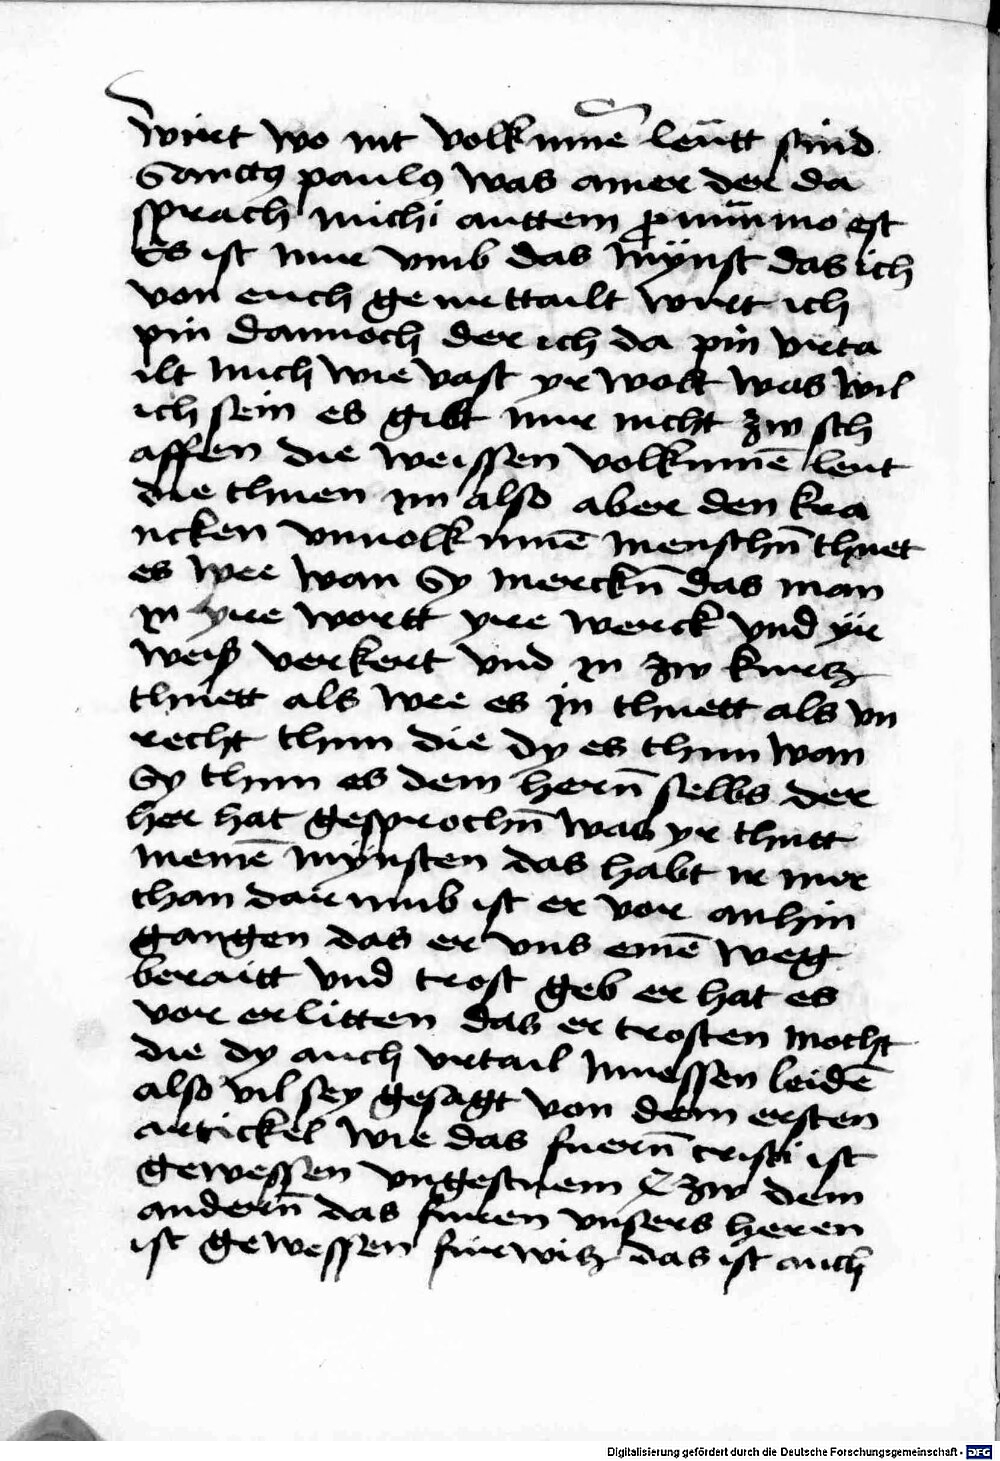 wirt wo nit volkumē leūtt sind
Sanctus paulus was ainer der da
sprach michi auttem pro minimo est
Es ist mir vmb das mÿnst das ich
von euch geurttailt wirt ich
pin dannoch der ich da pin vrta
ilt mich wie vast yr wolt was wil
ich sein es gibt mir nicht zw sch
affen die weissen volkumē leut
die thuen im also aber den kra
ncken vnuolkumē menschn̄ thuet
es wee wan Sy merckn̄ das man
in yre wortt yre werck vnd yr
weiß verkert vnd in zw kurtz
thuett als wee es in thuett als vn
recht thun die dy es thun wan
Sy thun es dem hern̄ selbs der
her hat gesprochn̄ was yr thutt
meinē mÿnsten das habt ir mir
than darumb ist er vor anhin
gangen das er vns einē weg
beraitt vnd trost geb er hat es
vor erlitten das er trosten mocht
die dy auch vrtail muessen leidē
also vil sey gesagt von dem ersten
artickel wie das fuern̄ cristi ist
gewessen vngestuem zw dem
andern̄ das furen vnsers heren
ist gewessen fürwitz das ist auch
Digitalisierung gefördert durch die Deutsche Forschungsgemeinschaft - DFG